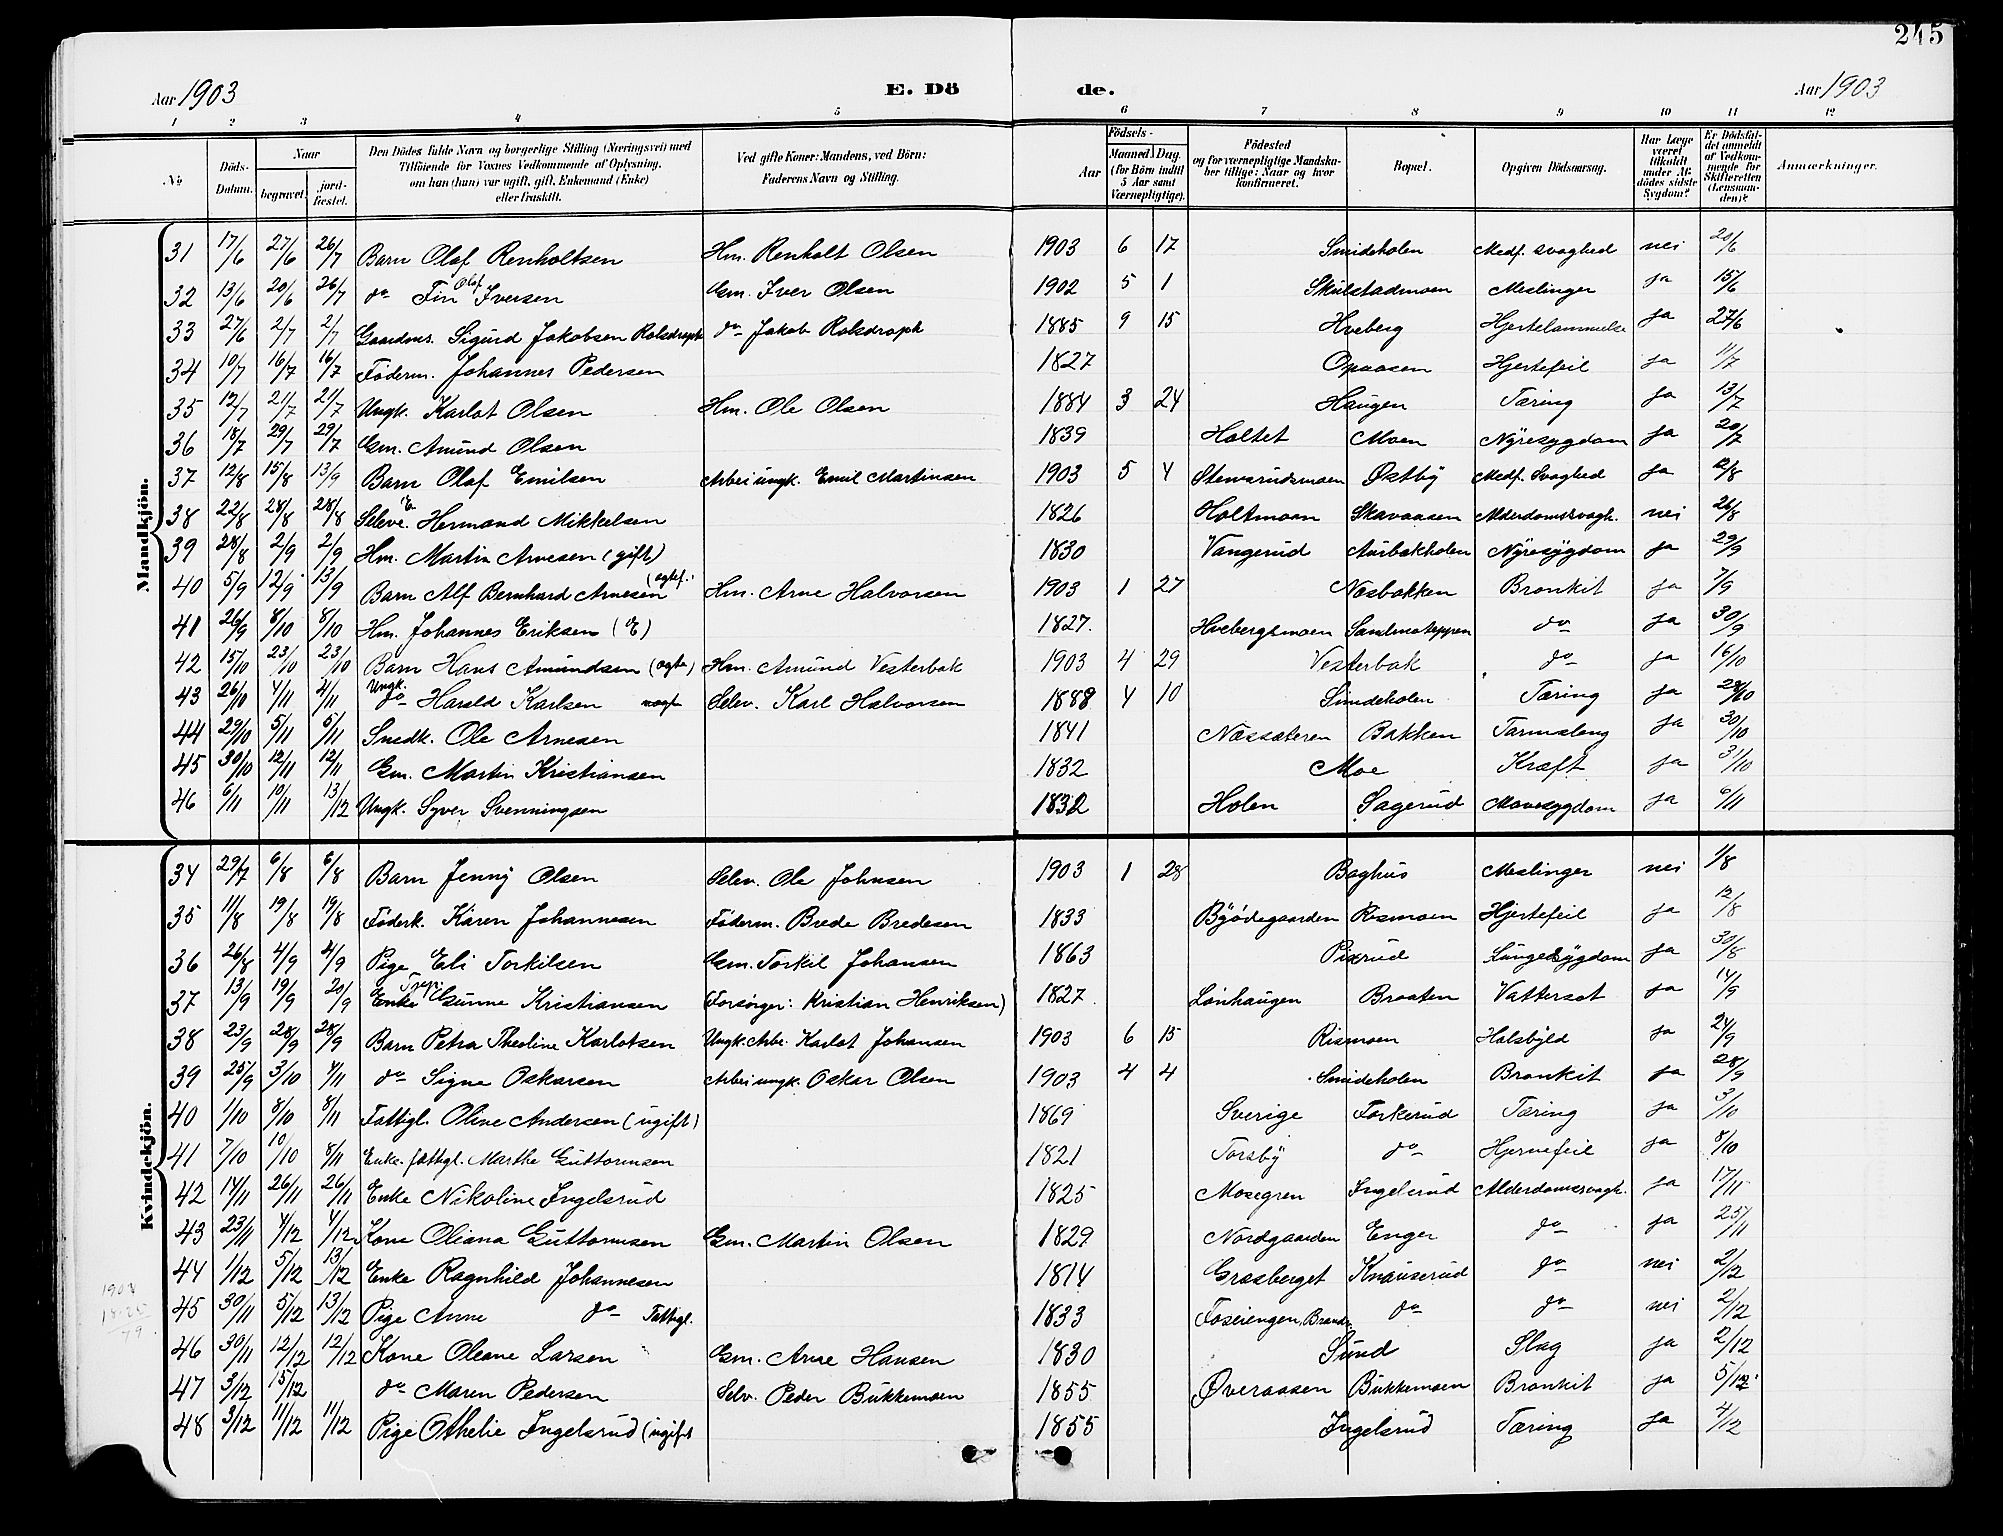 245
Aar 1903 E. Dö de. Aar 1903
1 2 3 4 5 6 7 8 9 10 11 12
№ Döds-Datum. Naar begravet. jord-fæstet. Den Dödes fulde Navn og borgerlige Stilling (Næringsvei) med Tilföiende for Voxnes Vedkommende af Oplysning, om han (hun) var ugift, gift, Enkemand (Enke) eller fraskilt. Ved gifte Koner: Mandens, ved Börn: Faderens Navn og Stilling. Födsels- Aar Maaned Dag. (for Börn indtil 5 Aar samt Værnepligtige). Födested og for værnepligtige Mandskaber tillige: Naar og hvor konfirmeret. Bopæl. Opgiven Dödsaarsag. Har Læge været tilkaldt under Afdödes sidste Sygdom? Er Dödsfaldet anmeldt af Vedkommende for Skifteretten (Lensmanden)? Anmærkninger.
Mandkjön.
31 17/6 27/6 26/7 Barn Olaf Renholtsen Hm. Renholt Olsen 1903 6 17 Smideholen Medf. svaghed nei 20/6
32 13/6 20/6 26/7 do Fin Olaf Iversen Gm. Iver Olsen 1902 5 1 Skulstadmoen Meslinger ja 15/6
33 27/6 2/7 2/7 Gaardms. Sigurd Jakobsen Rolsdroph do Jakob Rolsdroph 1885 9 15 Hveberg Hjertelammelse ja 27/6
34 10/7 16/7 16/7 Föderm. Johannes Pedersen 1827 Opaasen Hjertefeil ja 11/7
35 12/7 21/7 21/7 Ungk. Karlot Olsen Hm. Ole Olsen 1884 3 24 Haugen Tæring ja 13/7
36 18/7 29/7 29/7 Gm. Amund Olsen 1839 Holtet Moen Nyresygdom ja 20/7
37 12/8 15/8 13/9 Barn Olaf Emilsen Arbei ungk. Emil Martinsen 1903 5 4 Stensrudsmoen Østby Medf. Svaghed ja 12/8
38 22/8 28/8 28/8 Seleve. E Hermand Mikkelsen 1826 Holtmoen Skavaasen Alderdomssvagh. nei 26/8
39 28/8 2/9 2/9 Hm. Martin Arnesen (gift) 1830 Vangerud Aurbakholen Nyresygdom ja 29/9
40 5/9 12/9 13/9 Barn Alf Bernhard Arnesen (egtef. Hm. Arne Halvorsen 1903 1 27 Næsbakken Bronkit ja 7/9
41 26/9 8/10 8/10 Hm. Johannes Eriksen (E) 1827. Hvebergsmoen Sandmoteppen do ja 30/9
42 15/10 23/10 23/10 Barn Hans Amundsen (egte) Hm. Amund Vesterbak 1903 4 29 Vesterbak do ja 16/10
43 26/10 4/11 4/11 Ungk. do Harald Karlsen uegte Selev. Karl Halvorsen 1888 4 10 Smideholen Tæring ja 28/10
44 29/10 5/11 5/11 Snedk. Ole Arnesen 1841 Næssæteren Bakken Tarmslyng ja 30/10
45 30/10 12/11 12/11 Gm. Martin Kristiansen 1832 Moe Kræft ja 31/10
46 6/11 10/11 13/12 Ungk. Syver Svenningsen 1832 Holen Sagerud Mavesygdom ja 6/11
Kvindekjön.
34 29/7 6/8 6/8 Barn Jenny Olsen Selev. Ole Johnsen 1903 1 28 Baghus Meslinger nei 1/8
35 11/8 19/8 19/8 Föderk. Karen Johannesen Föderm. Brede Bredesen 1833 Bjødegaarden Rismoen Hjertefeil ja 12/8
36 26/8 4/9 4/9 Pige Eli Torkilsen Gm. Torkil Johansen 1863 Pixrud Lungesygdom ja 30/8
37 13/9 19/9 20/9 Enke Gunne Kristiansen (Forsørger: Kristian Henriksen) 1827 Lønhaugen Braaten Vattersot ja 14/9
38 23/9 28/9 28/9 Barn Petra Theoline Karlotsen Ungk. Arbe. Karlot Johansen 1903 6 15 Rismoen Halsbyld ja 24/9
39 25/9 3/10 4/11 do Signe Oskarsen Arbei ungk. Oskar Olsen 1903 4 4 Smideholen Bronkit ja 28/9
40 1/10 8/10 8/11 Fattigl. Oline Andersen (ugift) 1869 Sverige Torkerud Tæring ja 3/10
41 7/10 10/10 8/11 Enke. fattigl. Marthe Guttormsen 1821 Torsby do Hjernefeil ja 8/10
42 14/11 26/11 26/11 Enke Nikoline Ingelsrud 1825 Mosegren Ingelsrud Alderdomssvagh. ja 17/11
43 23/11 4/12 4/12 Kone Oliana Guttormsen Gm. Martin Olsen 1829 Nordgaarden Enger do ja 25/11
44 1/12 5/12 13/12 Enke Ragnhild Johannesen 1814 Græsberget Knauserud do nei 2/12
1903
18.25
79
45 30/11 5/12 13/12 Pige Anne do Fattigl. 1833 Foseiengen, Brandv. do do nei 2/12
46 30/11 12/12 12/12 Kone Oleane Larsen Gm. Arne Hansen 1830 Sund Slag ja 2/12
47 3/12 15/12 do Maren Pedersen Selv. Peder Bukkemoen 1855 Øveraasen Bukkemoen Bronkit ja 5/12
48 3/12 11/12 11/12 Pige Othelie Ingelsrud (ugift 1855 Ingelsrud Tæring ja 4/12